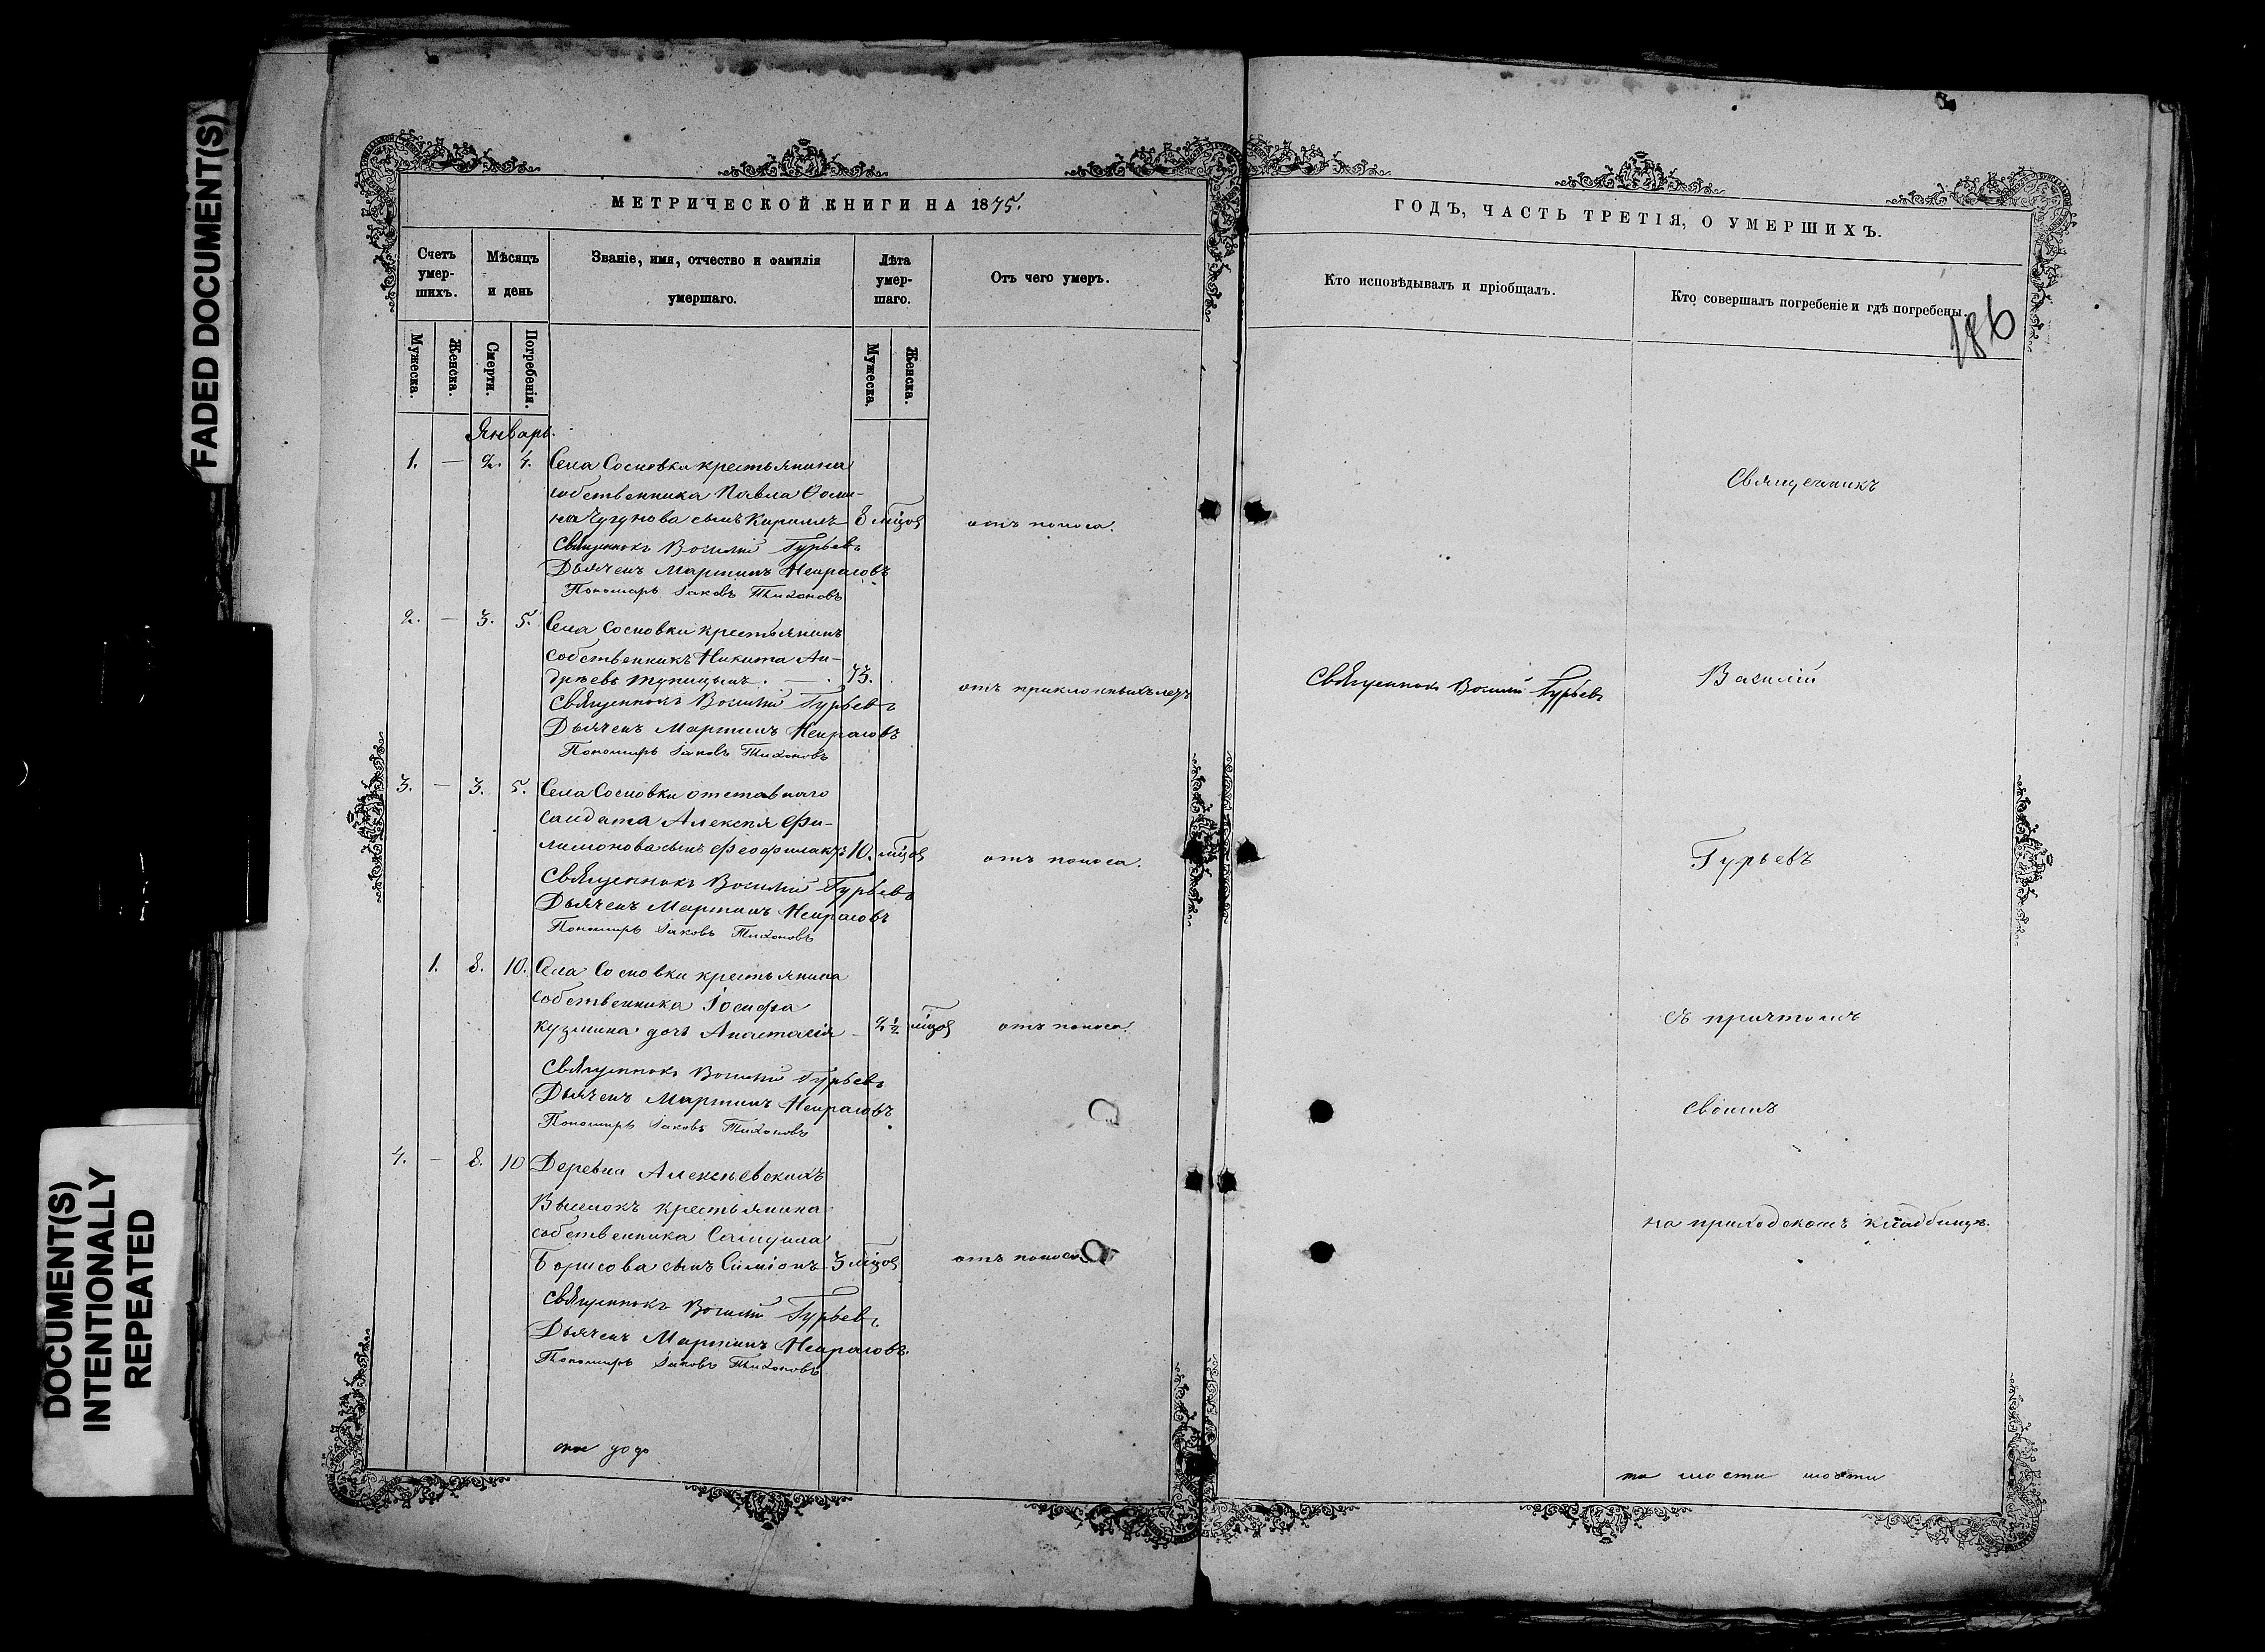 FADED DOCUMENT(S)
DOCUMENT(S)
INTENTIONALLY
REPEATED
МЕТРИЧЕСКОЙ КНИГИ НА 1875.
Счетъ
умер-
шихъ.
Мѣсяцъ
и день
Званіе, имя, отчество и фамилія
умершаго.
Лѣта
умер-
шаго.
Отъ чего умеръ.
Мужеска.
Женска.
Смерти.
Погребенія.
Мужеска.
Женска.
Январь.
1. — 2. 4. Села Сосновки крестьянина
собственника Павла
Чугунова сынъ Кириллъ 8 мцов отъ поноса.
Священникъ Василій Гурьевъ
Дьячекъ Мартинъ Некрасовъ
Пономарь Іаковъ Тихоновъ
2. — 3. 5. Села Сосновки крестьянинъ
собственникъ Никита Ан-
дрѣевъ Тупицынъ. — . 73. отъ преклонныхъ лѣтъ
Священникъ Василій Гурьевъ
Дьячекъ Мартинъ Некрасовъ
Пономарь Іаковъ Тихоновъ
3. — 3. 5. Села Сосновки отставнаго
солдата Алексѣя Фи-
лимонова сынъ Феофилактъ 10. мцов отъ поноса.
Священникъ Василій Гурьевъ
Дьячекъ Мартинъ Некрасовъ
Пономарь Іаковъ Тихоновъ
1. 8. 10. Села Сосновки крестьянина
собственника Іосифа
Кузмина дочь Анастасія — 2½ мцов отъ поноса.
Священникъ Василій Гурьевъ
Дьячекъ Мартинъ Некрасовъ
Пономарь Іаковъ Тихоновъ
4. — 8. 10 Деревни Алексѣевскихъ
Выселокъ крестьянина
собственника Самуила
Борисова сынъ Симіонъ 3 мцов отъ поноса
Священникъ Василій Гурьевъ
Дьячекъ Мартинъ Некрасовъ.
Пономарь Іаковъ Тихоновъ
ГОДЪ, ЧАСТЬ ТРЕТІЯ, О УМЕРШИХЪ.
Кто исповѣдывалъ и пріобщалъ.
Кто совершалъ погребеніе и гдѣ погребены.
186
Священникъ
Священникъ Василій Гурьевъ
Василій
Гурьевъ
съ причтомъ
своимъ
на приходскомъ кладбищѣ.